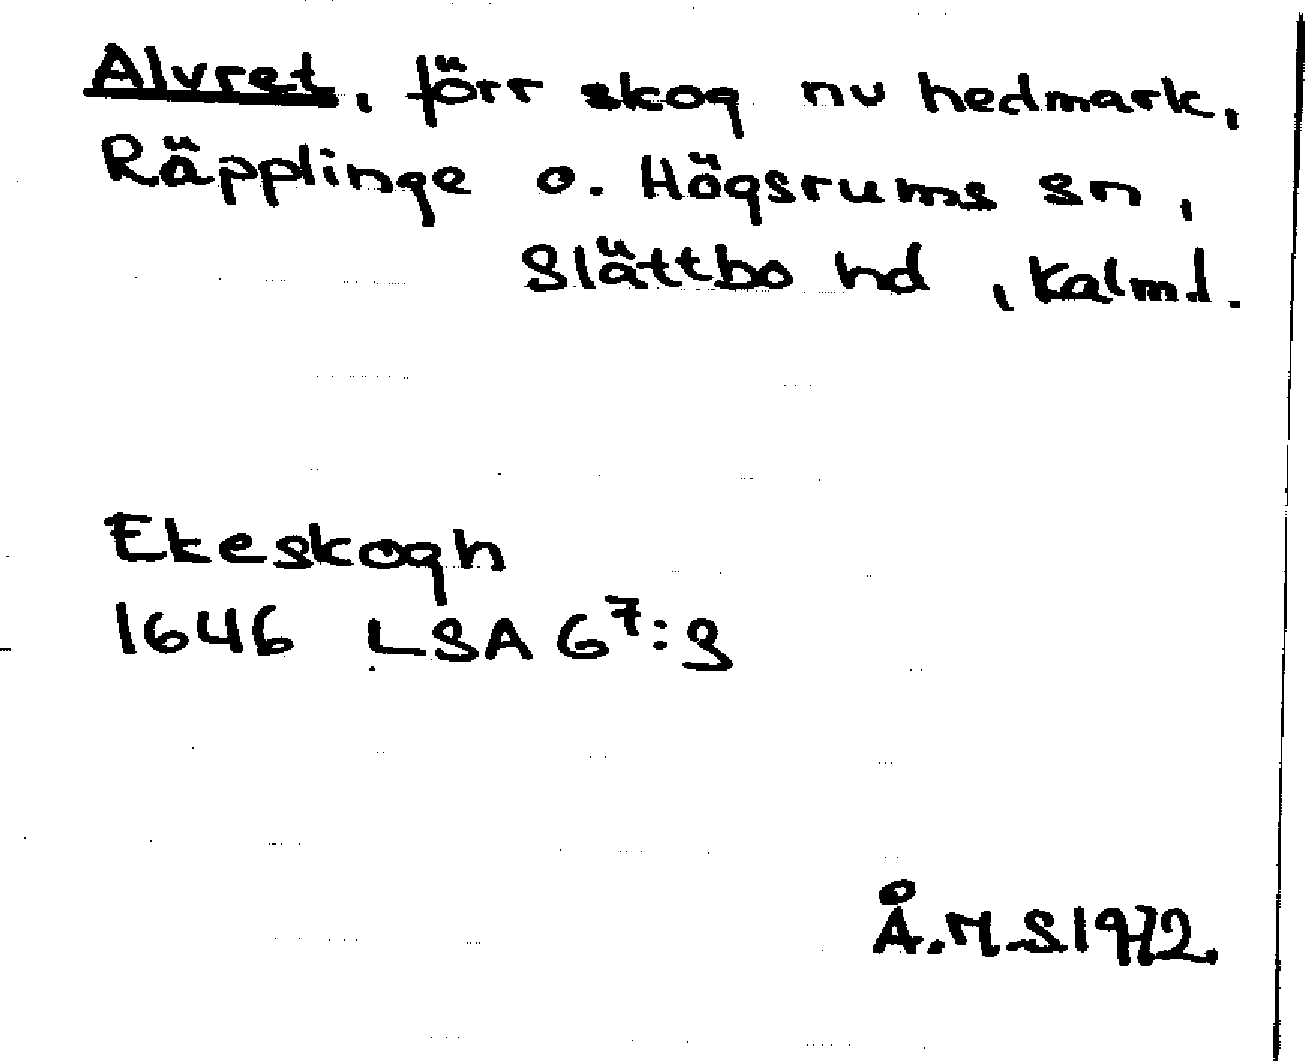 Alvret, förr skog nu hedmark,
Räpplinge o. Högsrums sn,
Slättbo hd, Kalm.l.
Ekeskogh
1646 LSA G⁷:3
Å.M-S 1972.